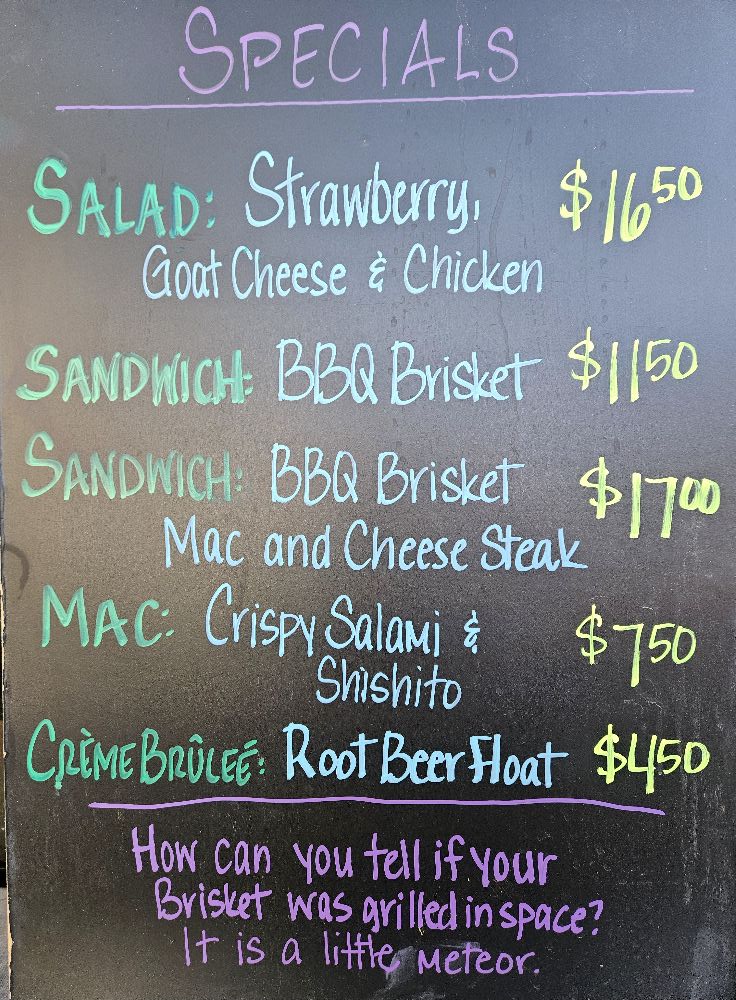 SPECIALS
SALAD: Strawberry, $16.50
Goat Cheese & Chicken
SANDWICH: BBQ Brisket $11.50
SANDWICH: BBQ Brisket $17.00
Mac and Cheese Steak
MAC: Crispy Salami & $7.50
Shishito
CRÈME BRÛLEÉ: Root Beer Float $4.50
How can you tell if your
Brisket was grilled in space?
It is a little meteor.